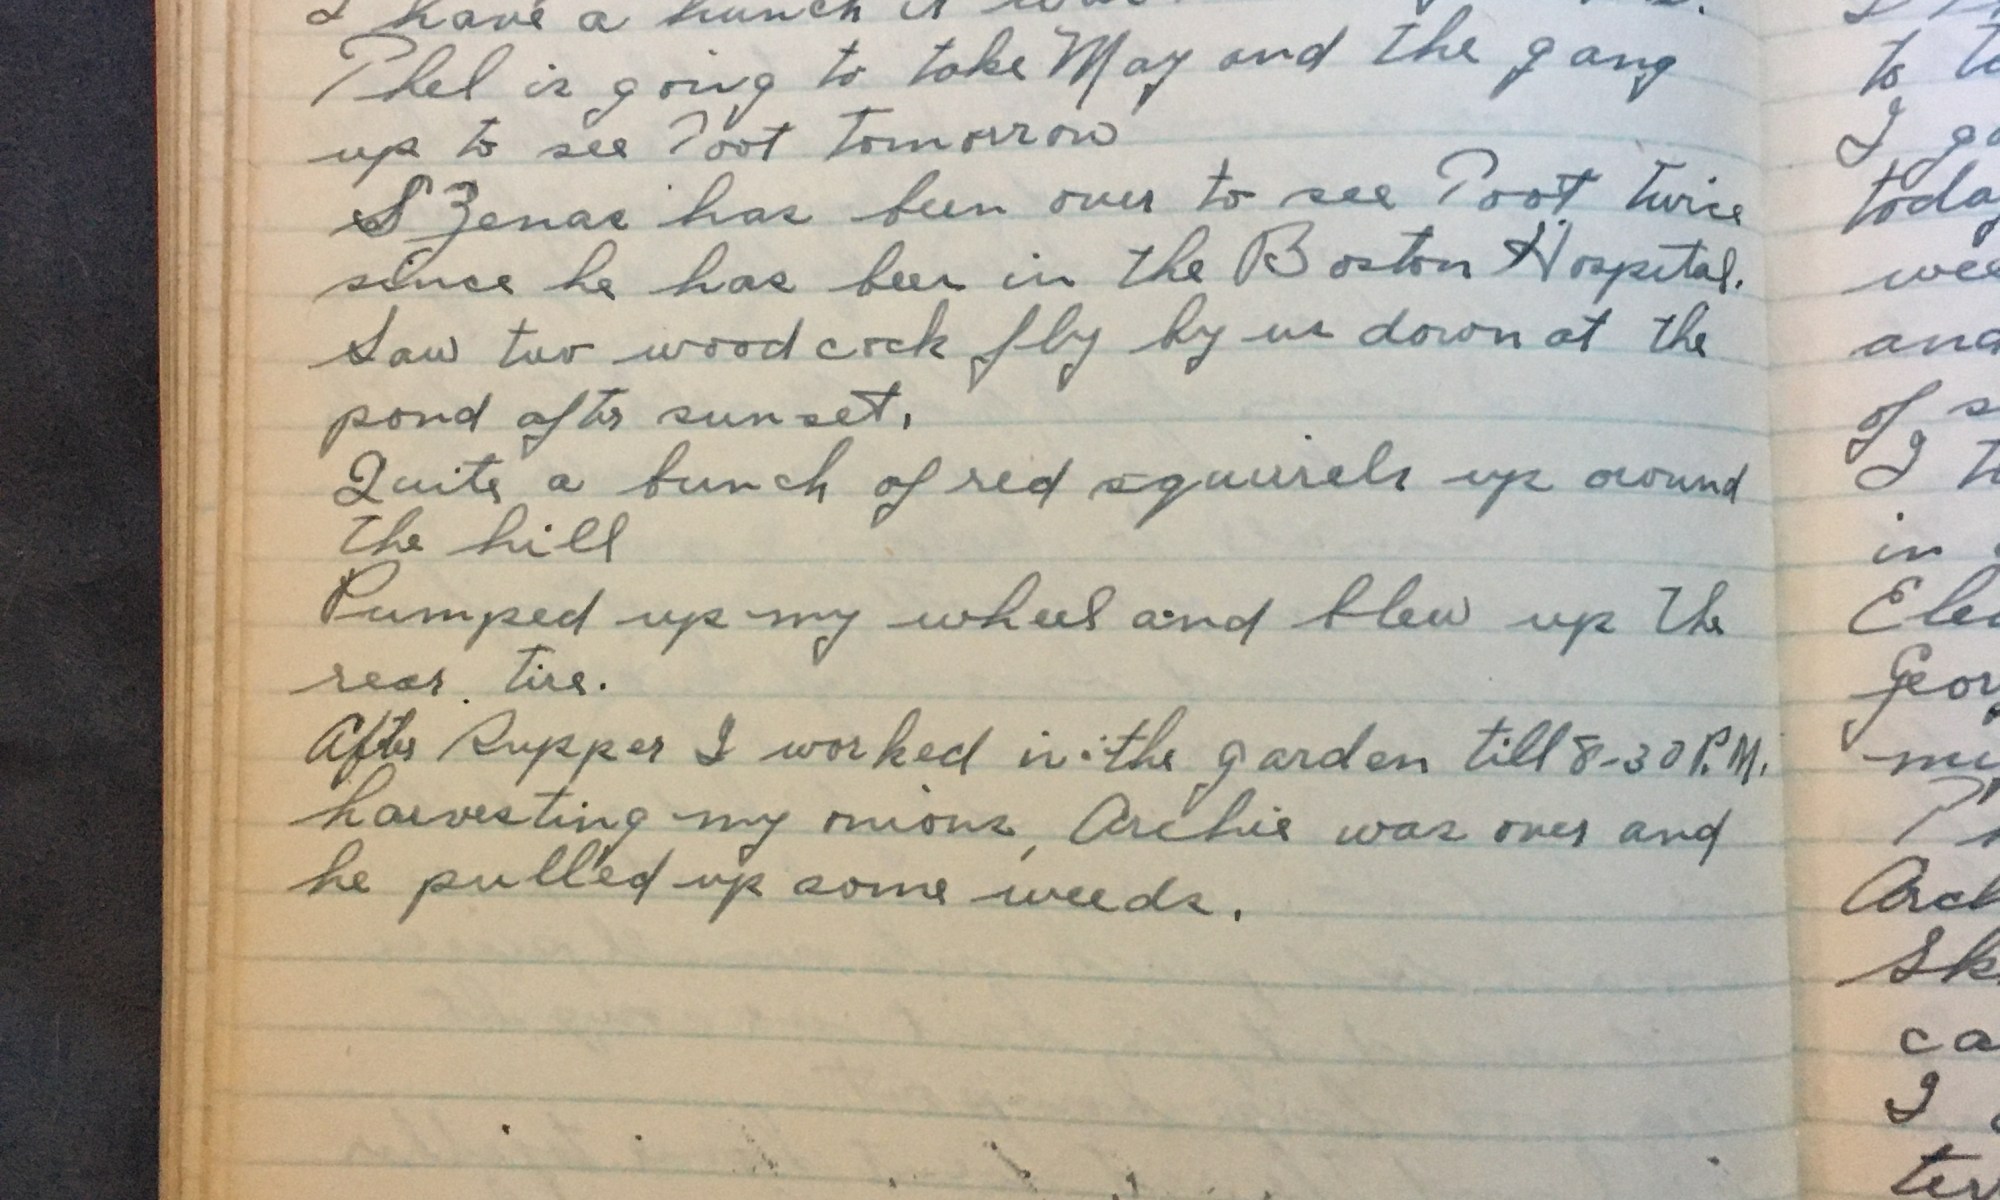 I have a hunch it was
Phel is going to take May and the gang
up to see Toot tomorrow
S Zenas has been over to see Toot twice
since he has been in the Boston Hospital.
Saw two woodcock fly by us down at the
pond after sunset.
Quite a bunch of red squirrels up around
the hill
Pumped up my wheel and blew up the
rear tire.
After supper I worked in the garden till 8-30 P.M.
harvesting my onions, Archie was over and
he pulled up some weeds.
to
I
today
and
of
I
in
I